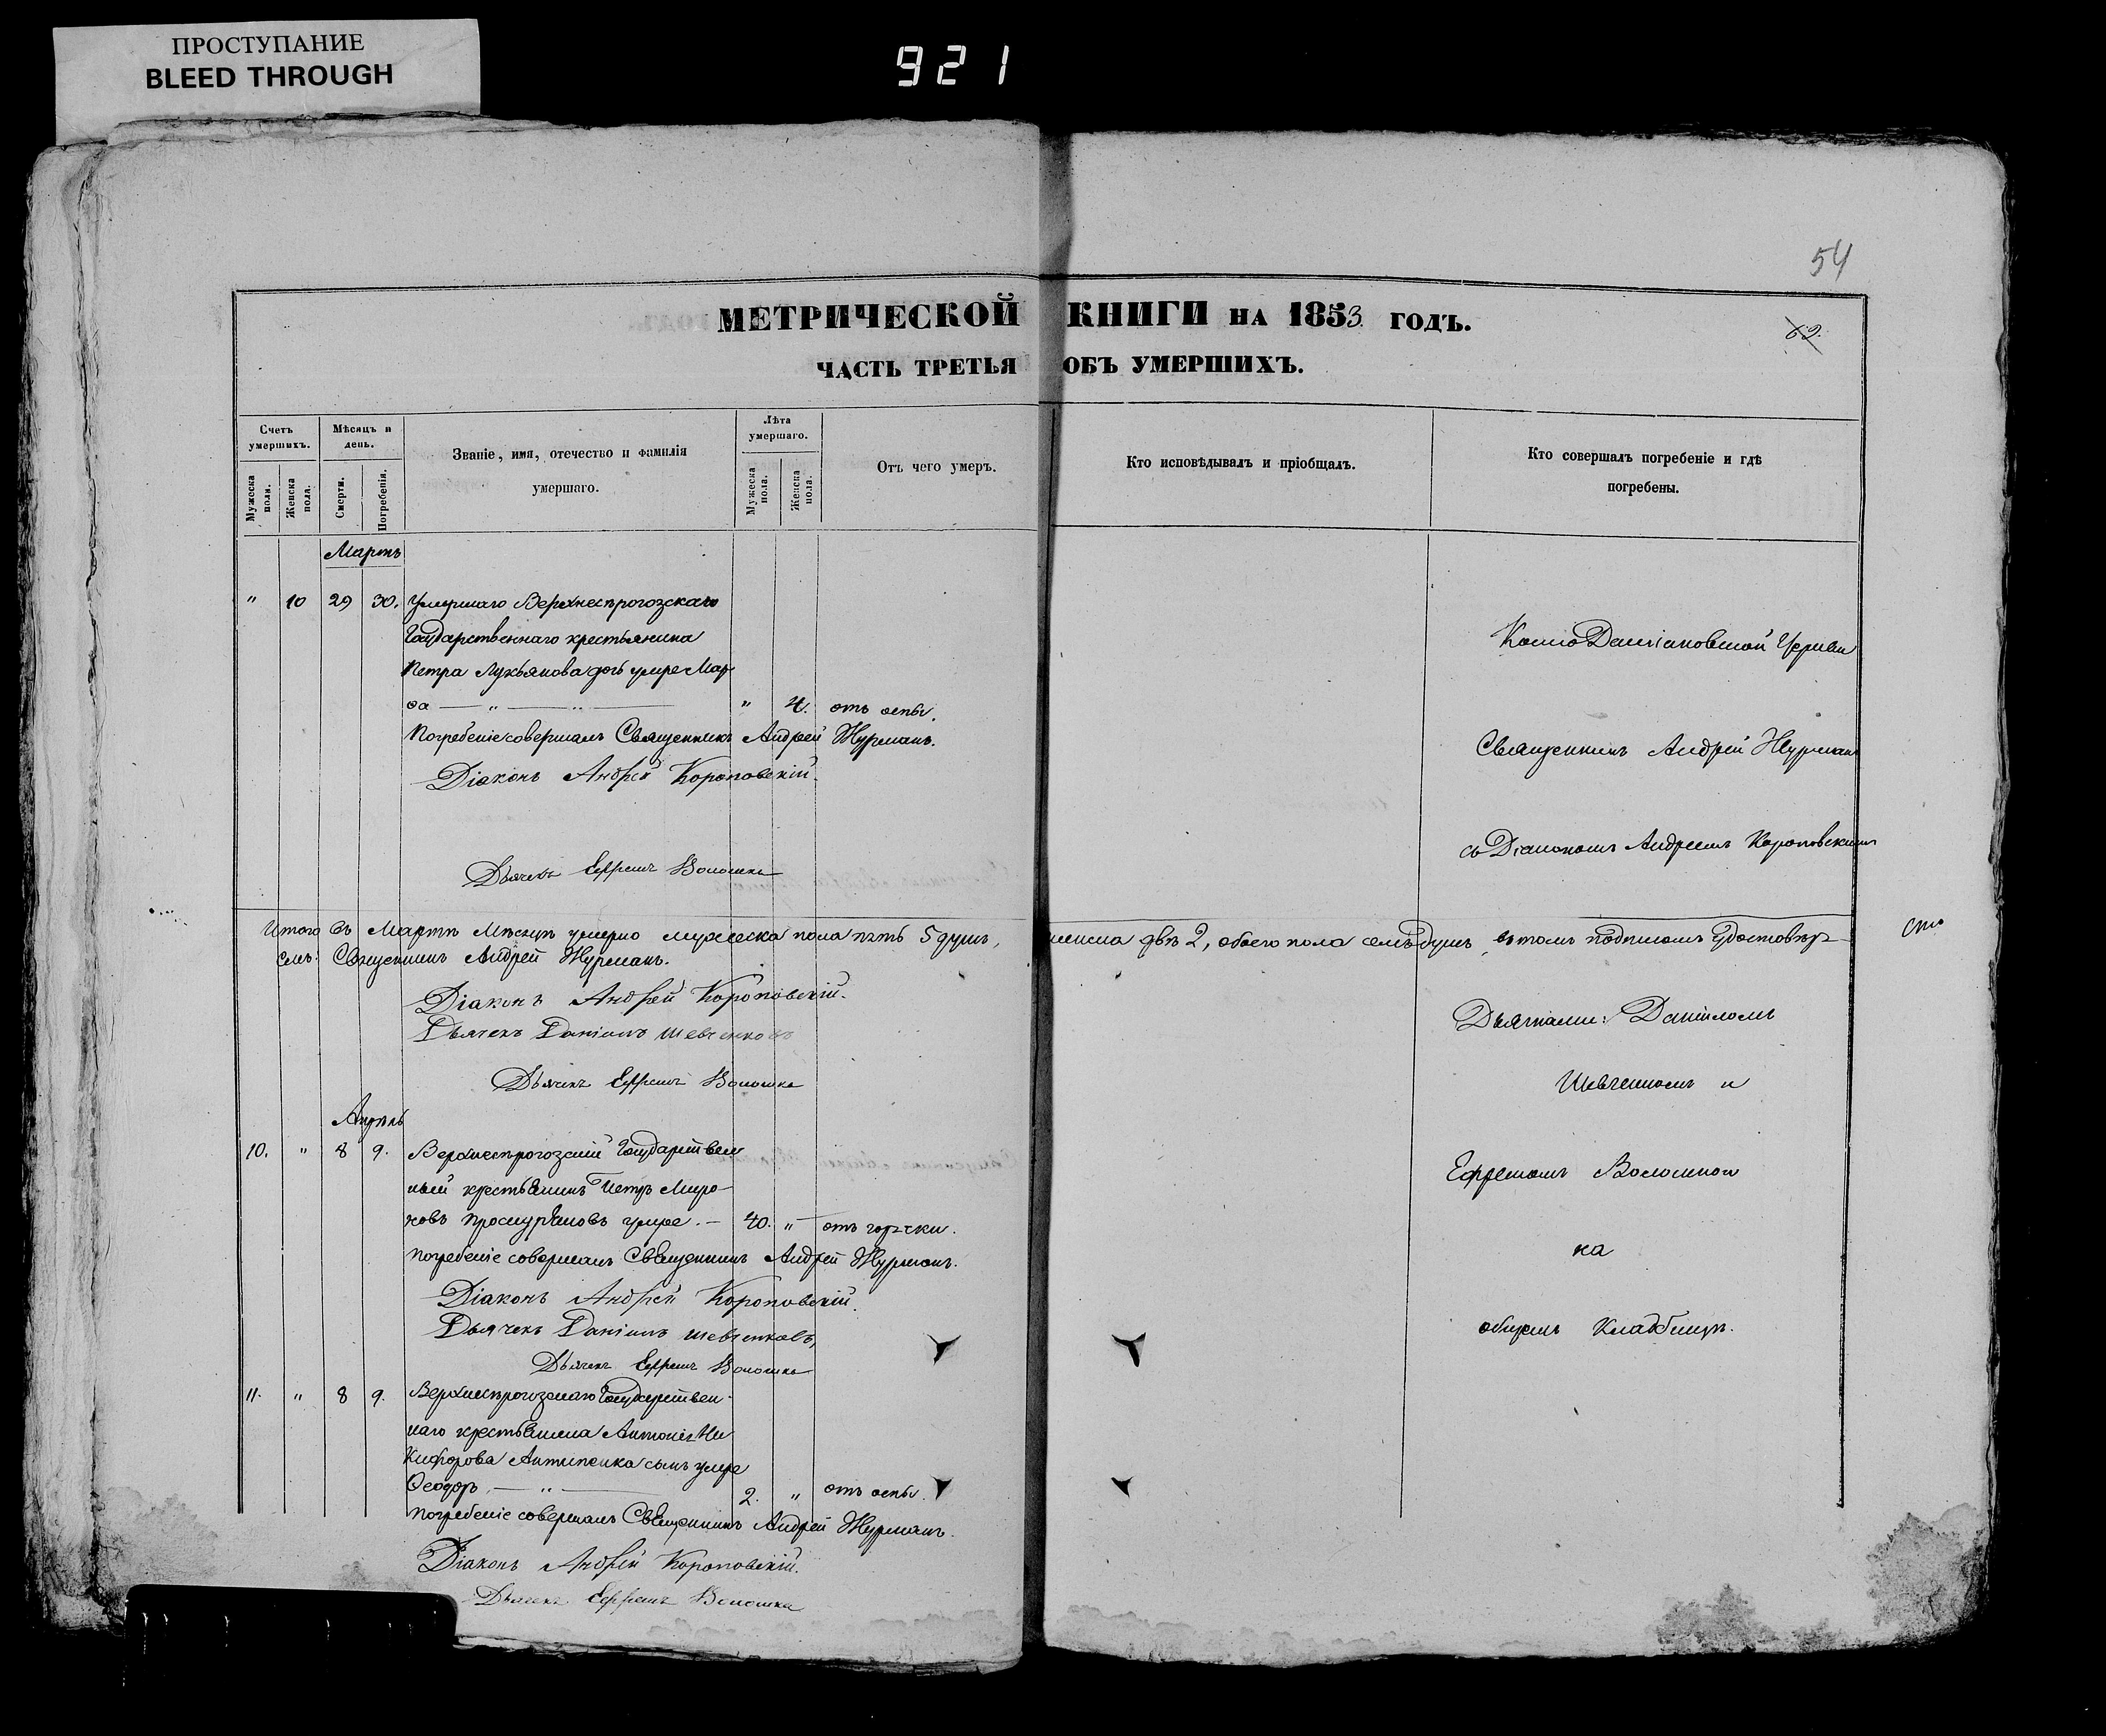 ПРОСТУПАНИЕ
BLEED THROUGH
921
54
МЕТРИЧЕСКОЙ КНИГИ НА 1853 ГОДЪ.
62.
ЧАСТЬ ТРЕТЬЯ ОБЪ УМЕРШИХЪ.
Счетъ умершихъ.
Мужеска пола.
Женска пола.
Мѣсяцъ и день.
Смерти.
Погребенія.
Званіе, имя, отечество и фамилія умершаго.
Лѣта умершаго.
Мужеска пола.
Женска пола.
Отъ чего умеръ.
Кто исповѣдывалъ и пріобщалъ.
Кто совершалъ погребеніе и гдѣ погребены.
Мартъ
" 10 29 30. Умершаго Верхнесѣрогозскаго
Государственнаго крестьянина
Петра Лукьянова дочь умре Мар
ѳа — " — " — " 4. отъ оспы.
Погребеніе совершалъ Священникъ Андрей Журманъ.
Діаконъ Андрей Короповскій.
Дьячекъ Ефремъ Волошка
Итого въ Мартѣ Мѣсяцѣ умерло мужеска пола пять 5 душъ, женска двѣ 2, обоего пола семь душъ, въ томъ подписомъ удостовѣр-
емъ: Священникъ Андрей Журманъ.
Діаконъ Андрей Короповскій.
Дьячекъ Даніилъ Шевченковъ
Дьячекъ Ефремъ Волошка
Апрѣль
10. " 8 9. Верхнесѣрогозскій Государствен
ный крестьянинъ Петръ
умре. — 40. " — отъ горячки.
Погребеніе совершалъ Священникъ Андрей Журманъ.
Діаконъ Андрей Короповскій.
Дьячекъ Даніилъ Шевченковъ,
Дьячекъ Ефремъ Волошка
11. " 8 9. Верхнесѣрогозскаго Государствен-
наго крестьянина Антонія Ни
кифорова Антипенка сынъ умре
Ѳеодоръ — " — 2. " отъ оспы.
Погребеніе совершалъ Священникъ Андрей Журманъ.
Діаконъ Андрей Короповскій.
Дьячекъ Ефремъ Волошка
Космо Даміановской Церкви
Священникъ Андрей Журманъ
съ Діакономъ Андреемъ Короповскимъ
Дьячками: Даніиломъ
Шевченкомъ и
Ефремомъ Волошкою
на
общемъ Кладбищѣ.